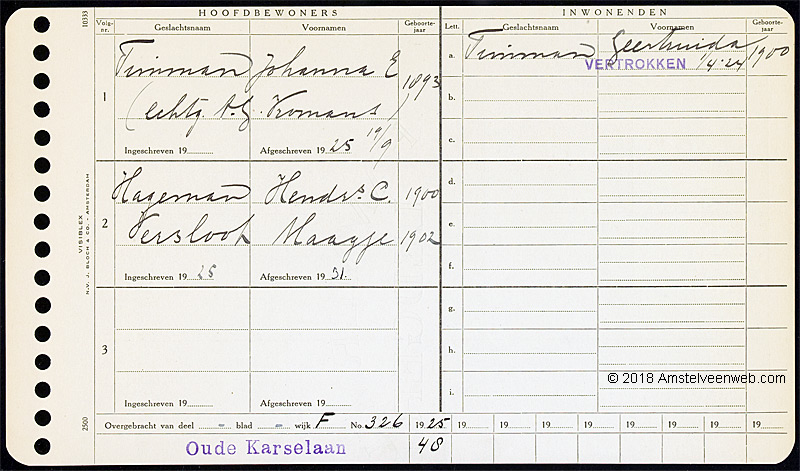 HOOFDBEWONERS
Volg-nr. Geslachtsnaam Voornamen Geboorte-jaar
1 Timman Johanna E 1893
(echtg. A.G. Komans)
19/9
Ingeschreven 19 Afgeschreven 19 25
2 Hageman Hendr.s C. 1900
Versloot Maagje 1902
Ingeschreven 19 25 Afgeschreven 19 31.
3
Ingeschreven 19 Afgeschreven 19
INWONENDEN
Lett. Geslachtsnaam Voornamen Geboorte-jaar
a. Timman Geertruida 1900
VERTROKKEN 1/4.24
b.
c.
d.
e.
f.
g.
h.
i.
© 2018 Amstelveenweb.com
Overgebracht van deel - blad - wijk F No. 326 19 25 19 19 19 19 19 19 19 19
Oude Karselaan 48
10333
VISIBLEX
N.V. J. BLOCH & CO. - AMSTERDAM
2500